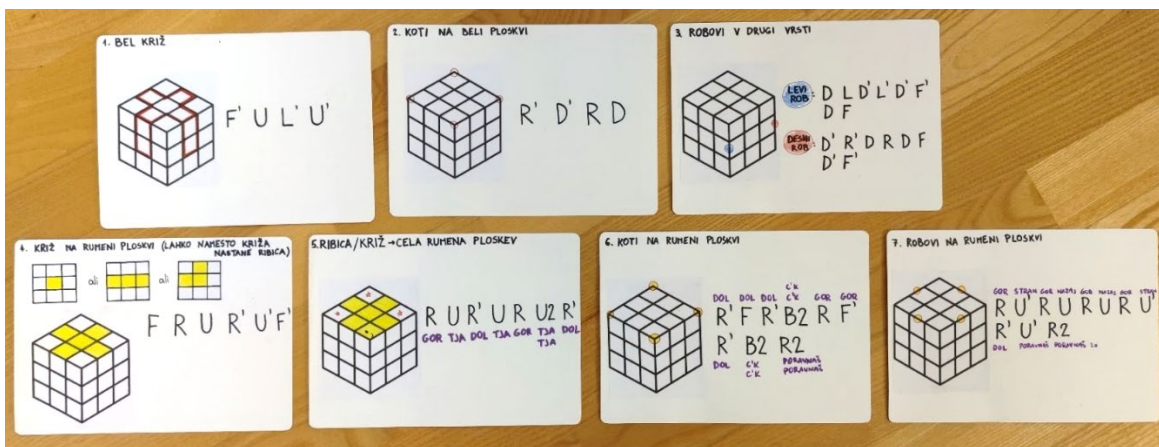 1. BEL KRIŽ
F' U L' U'
2. KOTI NA BELI PLOSKVI
R' D' R D
3. ROBOVI V DRUGI VRSTI
LEVI
ROB:
D L D' L' D' F'
D F
DESNI
ROB:
D' R' D R D F
D' F'
4. KRIŽ NA RUMENI PLOSKVI (LAHKO NAMESTO KRIŽA
NASTANE RIBICA)
ali ali
F R U R' U' F'
5. RIBICA/KRIŽ → CELA RUMENA PLOSKEV
R U R' U R U2 R'
GOR TJA DOL TJA GOR TJA DOL
TJA
6. KOTI NA RUMENI PLOSKVI
C'K
DOL DOL DOL C'K GOR GOR
R' F R' B2 R F'
R' B2 R2
DOL C'K PORAVNAŠ
C'K PORAVNAŠ
7. ROBOVI NA RUMENI PLOSKVI
GOR STRAN GOR NAZAJ GOR NAZAJ GOR STRAN
R U' R U R U R U'
R' U' R2
DOL PORAVNAŠ PORAVNAŠ 2x